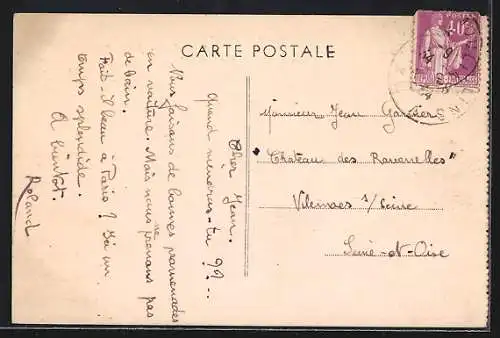 CARTE POSTALE
POSTES
40c
Cher Jean.
Quand viendras-tu ??...
Nous faisons de bonnes promenades
en voiture. Mais nous ne prenons pas
de bain.
Fait-il beau à Paris ? Ici un
temps splendide.
A bientôt.
Roland
Monsieur Jean Garnier
"Château des Ravenelles"
s/Seine
Seine-et-Oise